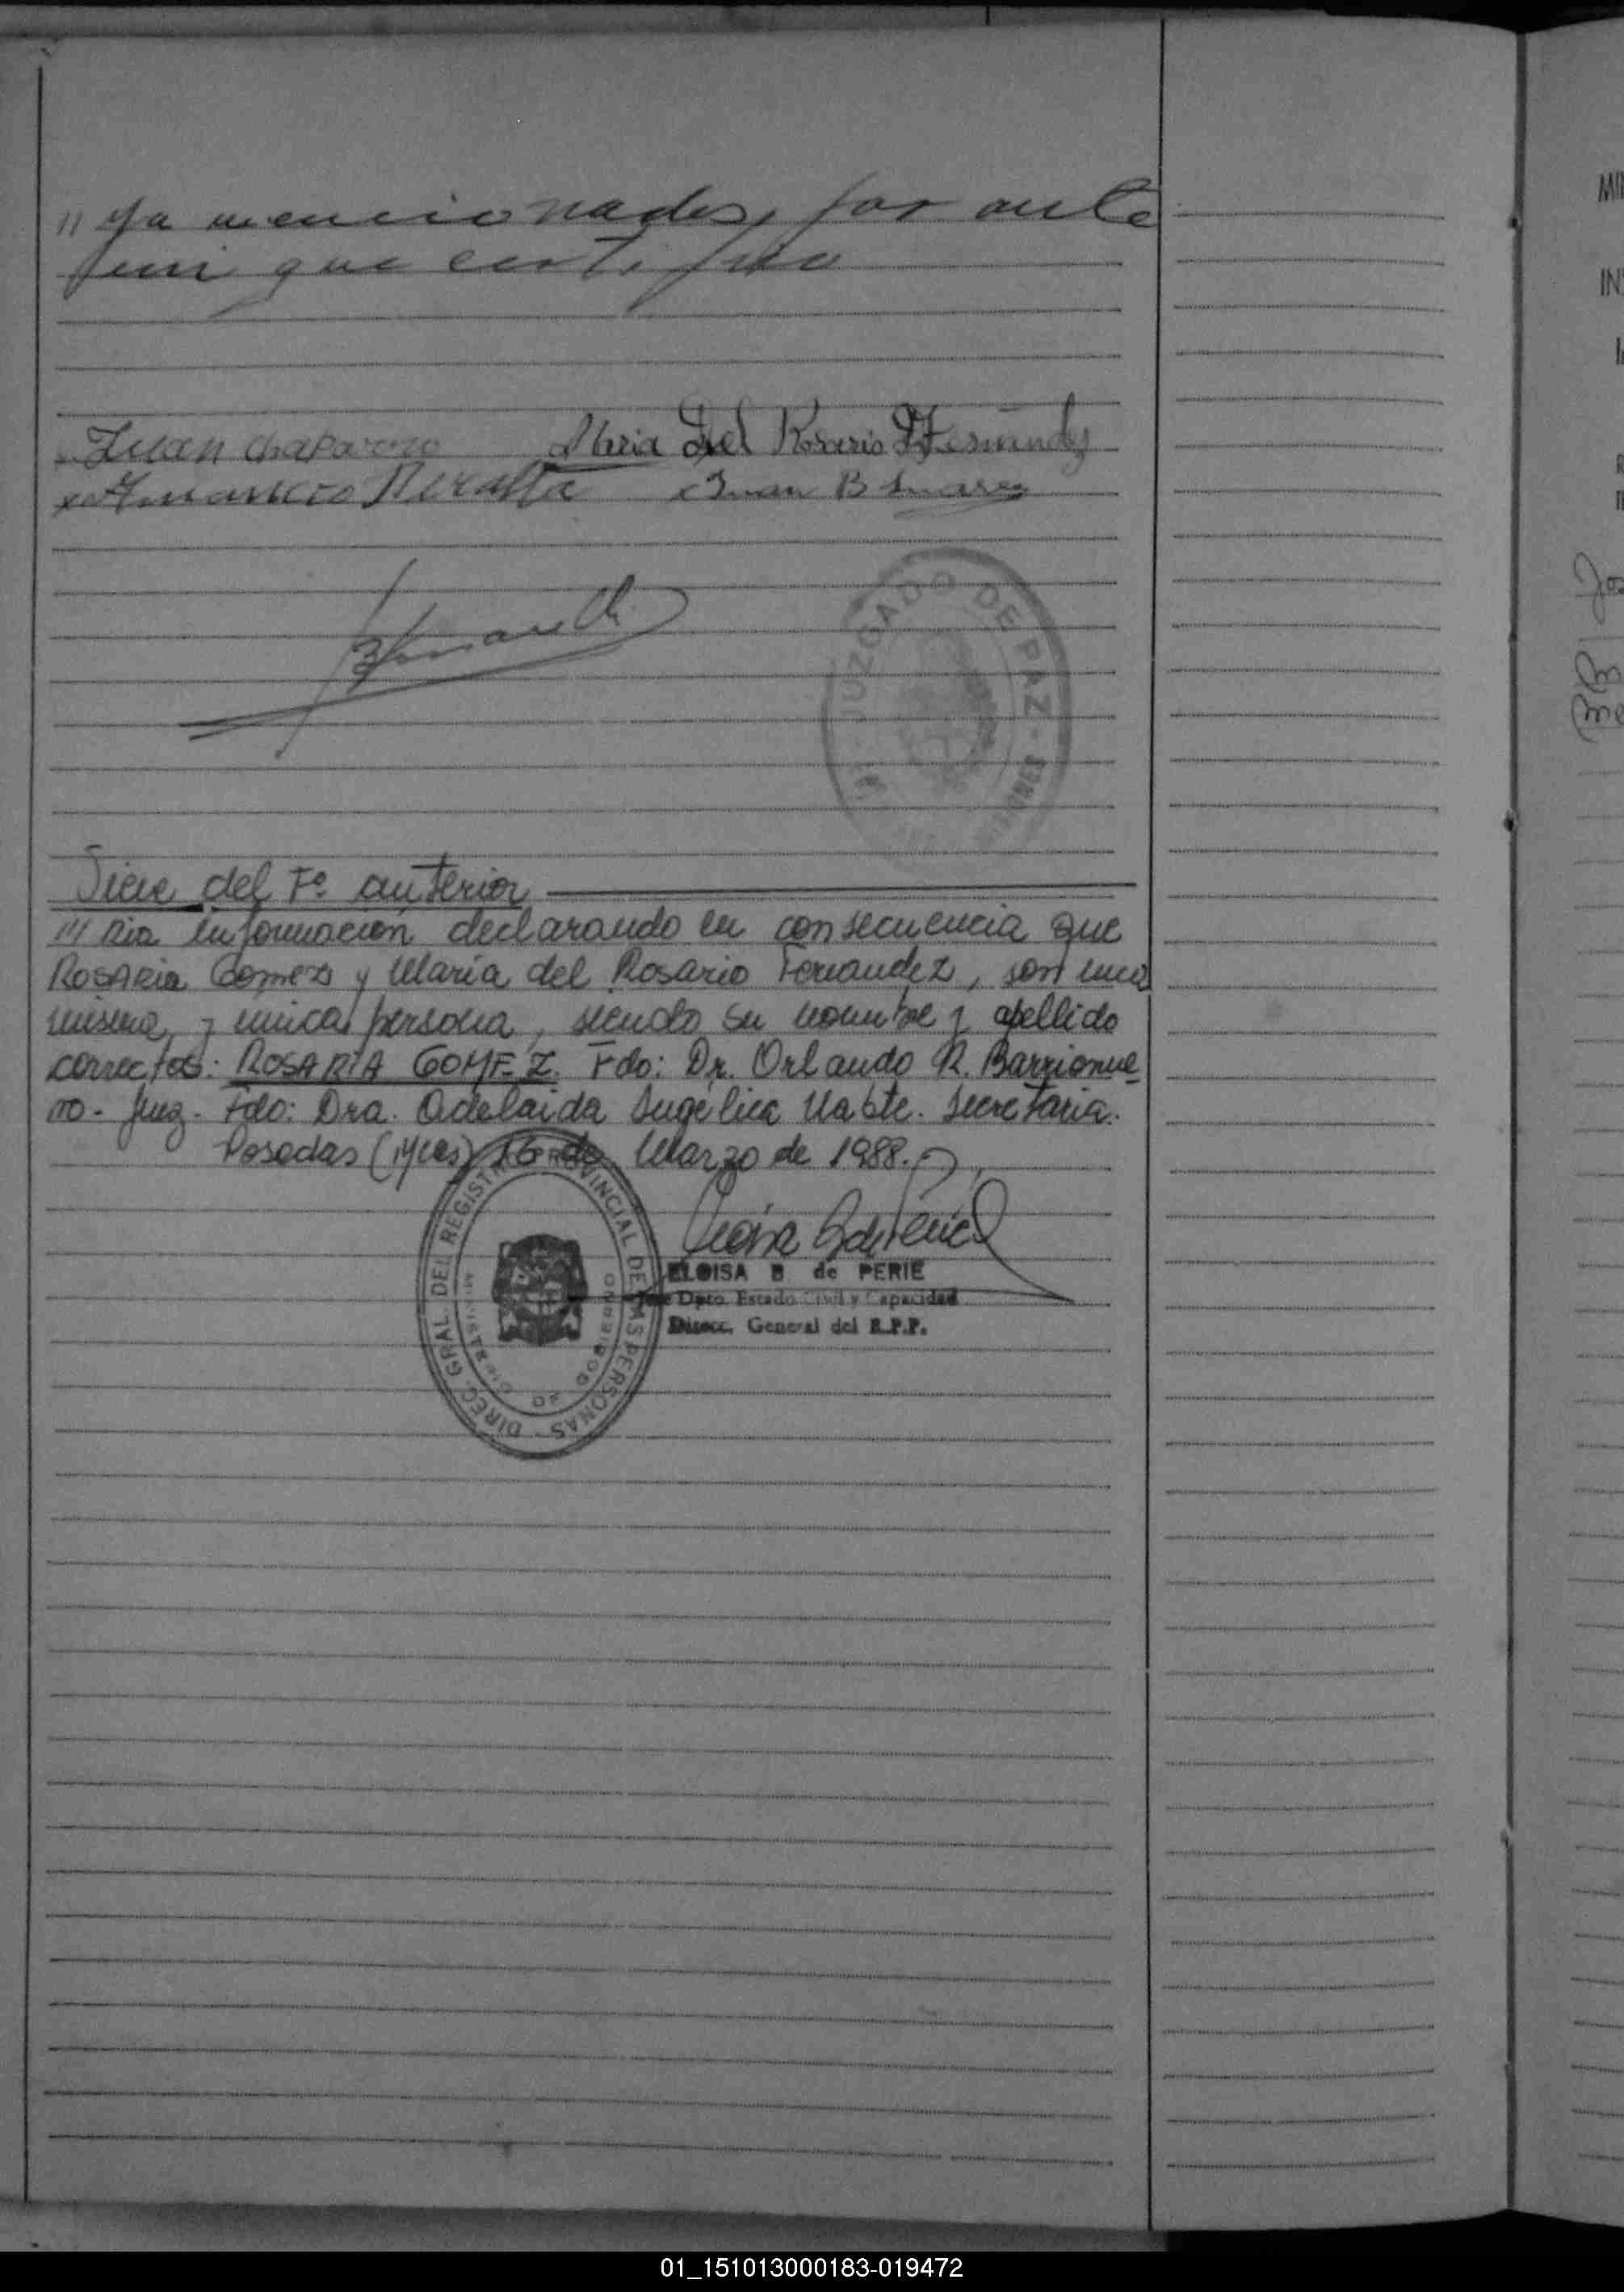 // ya mencionados, por ante
mi que certifico
Juan Chaparro Maria Del Rosario Fernandez
Amancio Peralta Juan B Suarez
JUZGADO DE PAZ - MISIONES
Viene del Fº anterior
/// ria información declarando en consecuencia que
ROSARIA Gomez y María del Rosario Fernandez, son una
misma y unica persona, siendo su nombre y apellido
correctos: ROSARIA GOMEZ. Fdo: Dr. Orlando R. Barrionue-
vo - Juez. Fdo: Dra. Adelaida Angélica Secretaria.
Posadas (Mnes) 16 de Marzo de 1988.
DIREC. GRAL. DEL REGISTRO PROVINCIAL DE LAS PERSONAS
MINISTERIO DE GOBIERNO
ELOISA B de PERIE
Jefe Dpto. Estado Civil y Capacidad
Direcc. General del R.P.P.
MI
IN
Jos
01_151013000183-019472